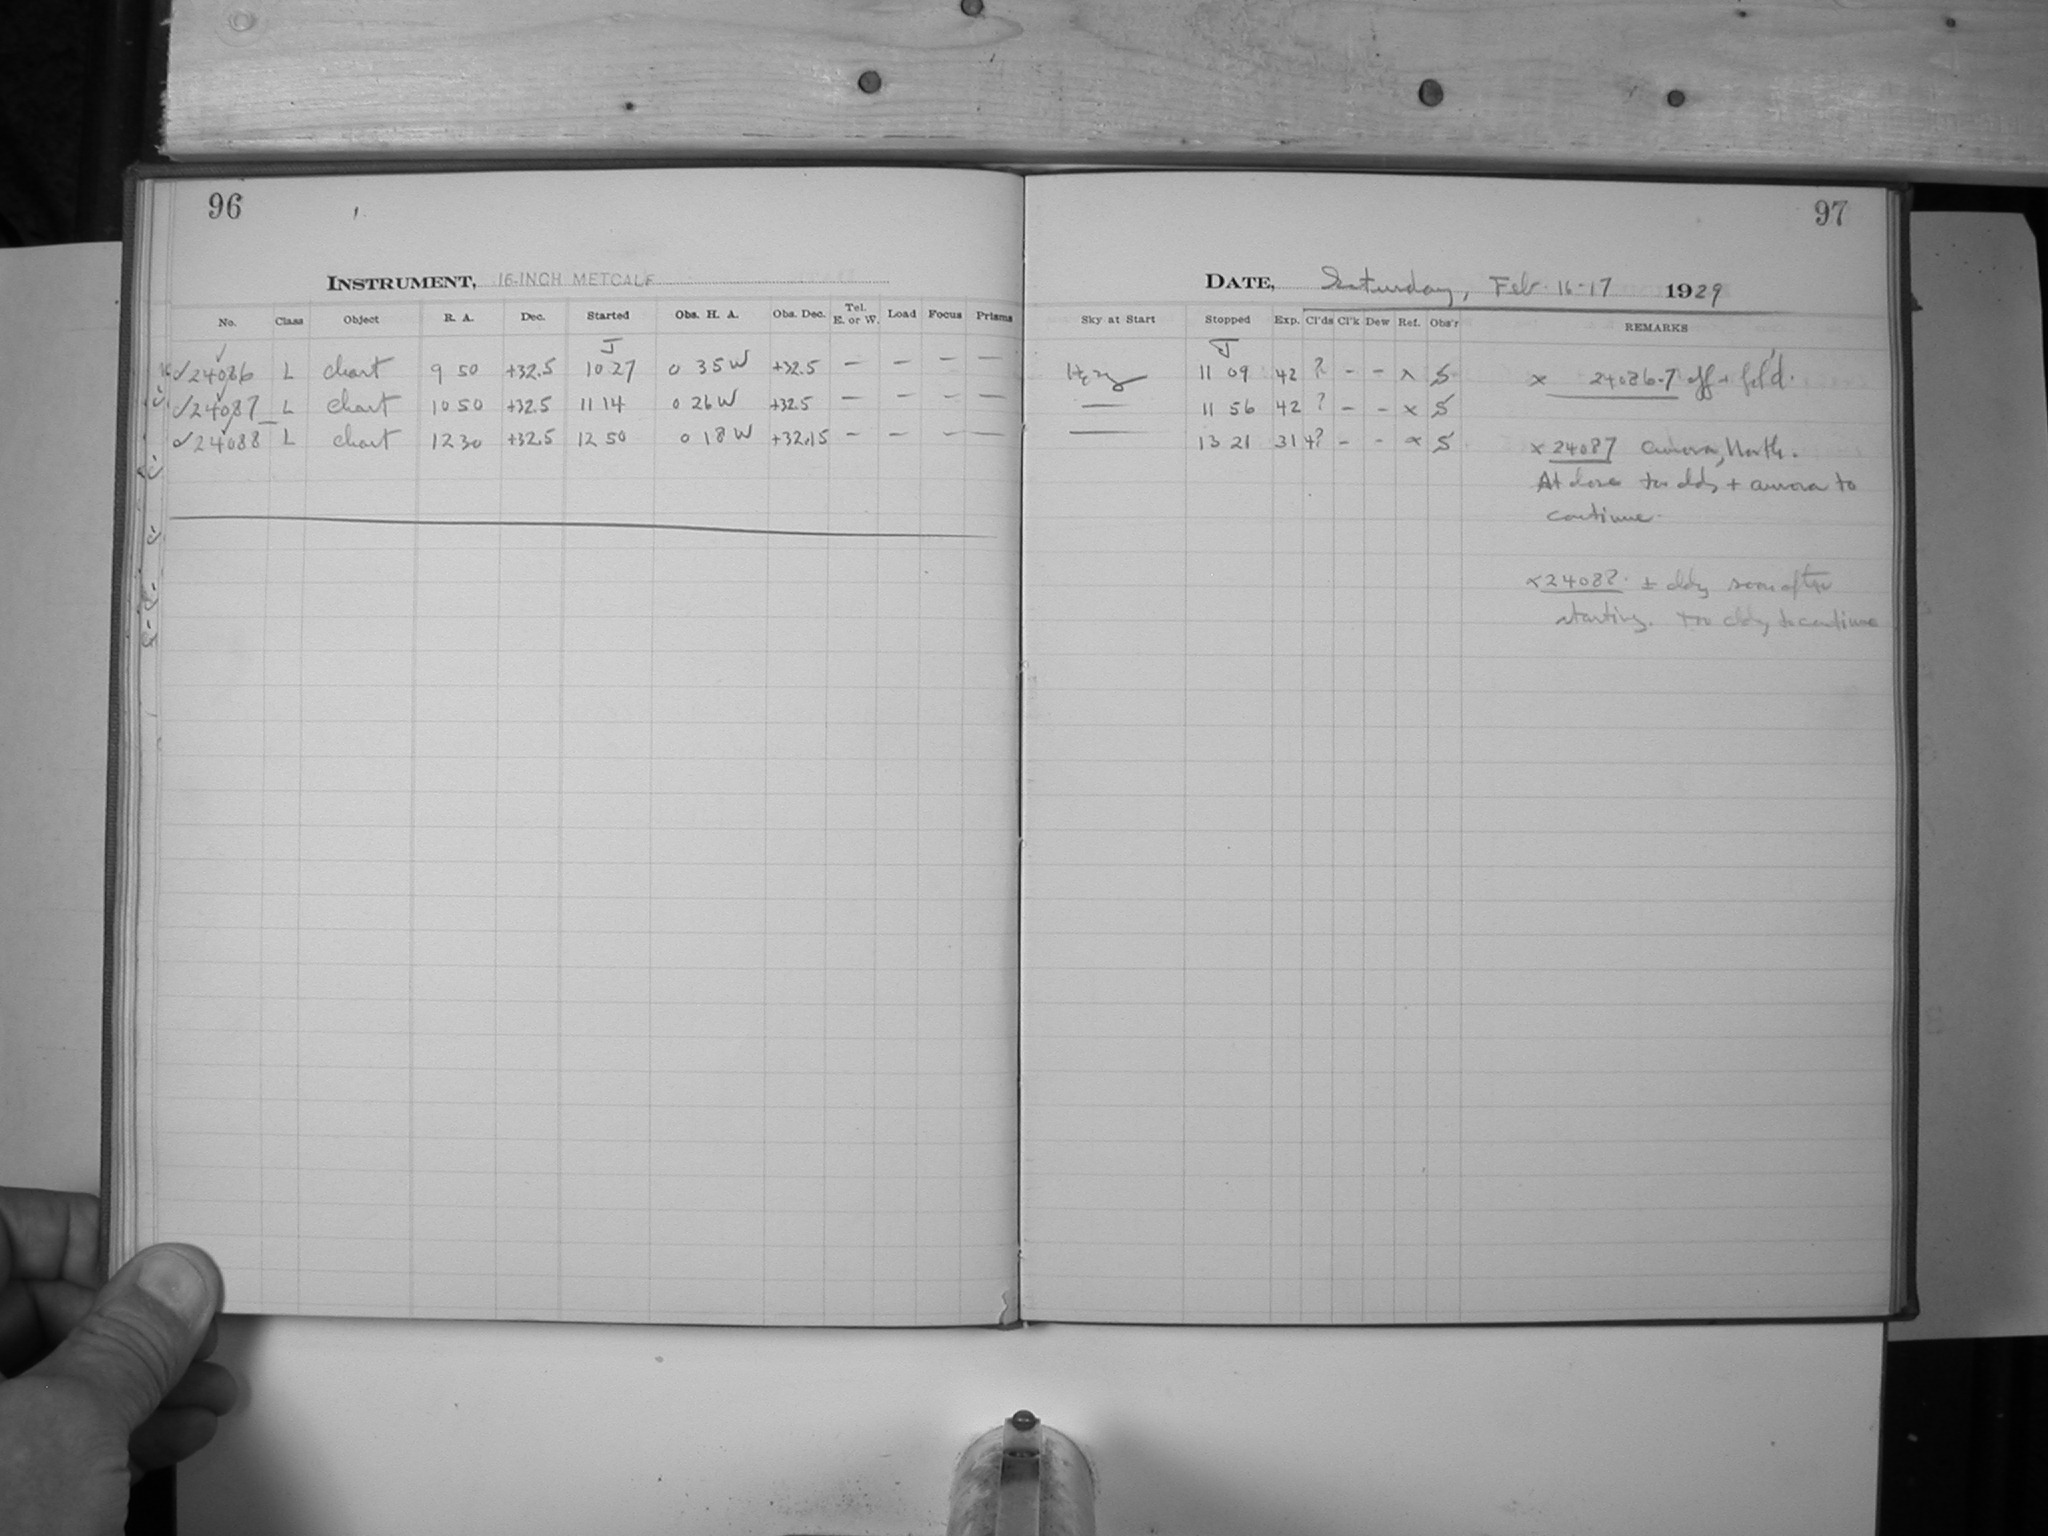 96
INSTRUMENT, 16-INCH METCALF
No. Class Object R. A. Dec. Started Obs. H. A. Obs. Dec. Tel. E. or W. Load Focus Prisms
J
✓24086 L chart 9 50 +32.5 10 27 0 35 W +32.5 — — — —
✓24087 L chart 10 50 +32.5 11 14 0 26 W +32.5 — — — —
✓24088 L chart 12 30 +32.5 12 50 0 18 W +32.15 — — — —
97
DATE, Saturday, Feb. 16-17 1929
Sky at Start Stopped Exp. Cl'ds Cl'k Dew Ref. Obs'r REMARKS
J
Hazy 11 09 42 ? - - x S x 24086-7 off + fol'd.
— 11 56 42 ? - - x S
— 13 21 31 +? - - x S x 24087 aurora, North.
At close too cldy + aurora to
continue.
x 24088. ± cldy soon after
starting. too cldy to continue